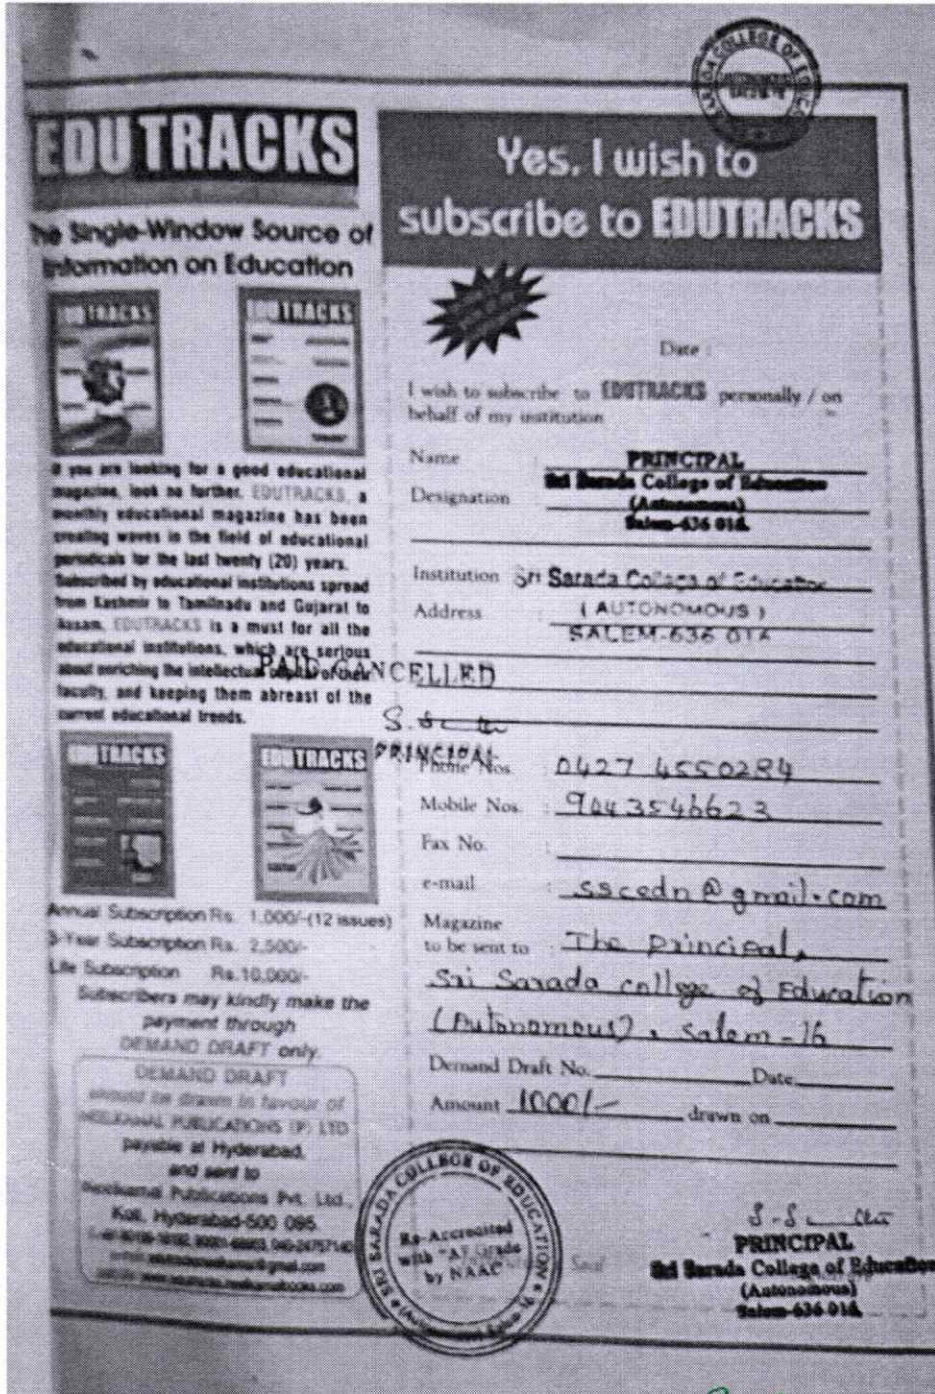 SARADA COLLEGE OF EDUC
AUTONOMOUS
EDUTRACKS
The Single-Window Source of
Information on Education
EDUTRACKS
EDUTRACKS
If you are looking for a good educational
magazine, look no further. EDUTRACKS, a
monthly educational magazine has been
creating waves in the field of educational
periodicals for the last twenty (20) years.
Subscribed by educational institutions spread
from Kashmir to Tamilnadu and Gujarat to
Assam, EDUTRACKS is a must for all the
educational institutions, which are serious
about enriching the intellectual capital of their
faculty, and keeping them abreast of the
current educational trends.
PAID CANCELLED
PRINCIPAL
EDUTRACKS
EDUTRACKS
Annual Subscription Rs. 1,000/-(12 issues)
3-Year Subscription Rs. 2,500/-
Life Subscription Rs.10,000/-
Subscribers may kindly make the
payment through
DEMAND DRAFT only.
DEMAND DRAFT
should be drawn in favour of
NEELKAMAL PUBLICATIONS (P) LTD
payable at Hyderabad,
and sent to
Neelkamal Publications Pvt. Ltd.,
Koti, Hyderabad-500 095.
Yes, I wish to
subscribe to EDUTRACKS
Date :
I wish to subscribe to EDUTRACKS personally / on
behalf of my institution
Name : PRINCIPAL
Sri Sarada College of Education
Designation : (Autonomous)
Salem-636 016.
Institution Sri Sarada College of Education
Address : (AUTONOMOUS)
SALEM-636 016
Phone Nos. : 0427 4550284
Mobile Nos. : 9443546623
Fax No. :
e-mail : sscedn@gmail.com
Magazine
to be sent to : The Principal,
Sri Sarada college of Education
(Autonomous), Salem-16
Demand Draft No. Date
Amount 1000/- drawn on
SRI SARADA COLLEGE OF EDUCATION
Re-Accredited
with "A" Grade
by NAAC
Seal
PRINCIPAL
Sri Sarada College of Education
(Autonomous)
Salem-636 016.